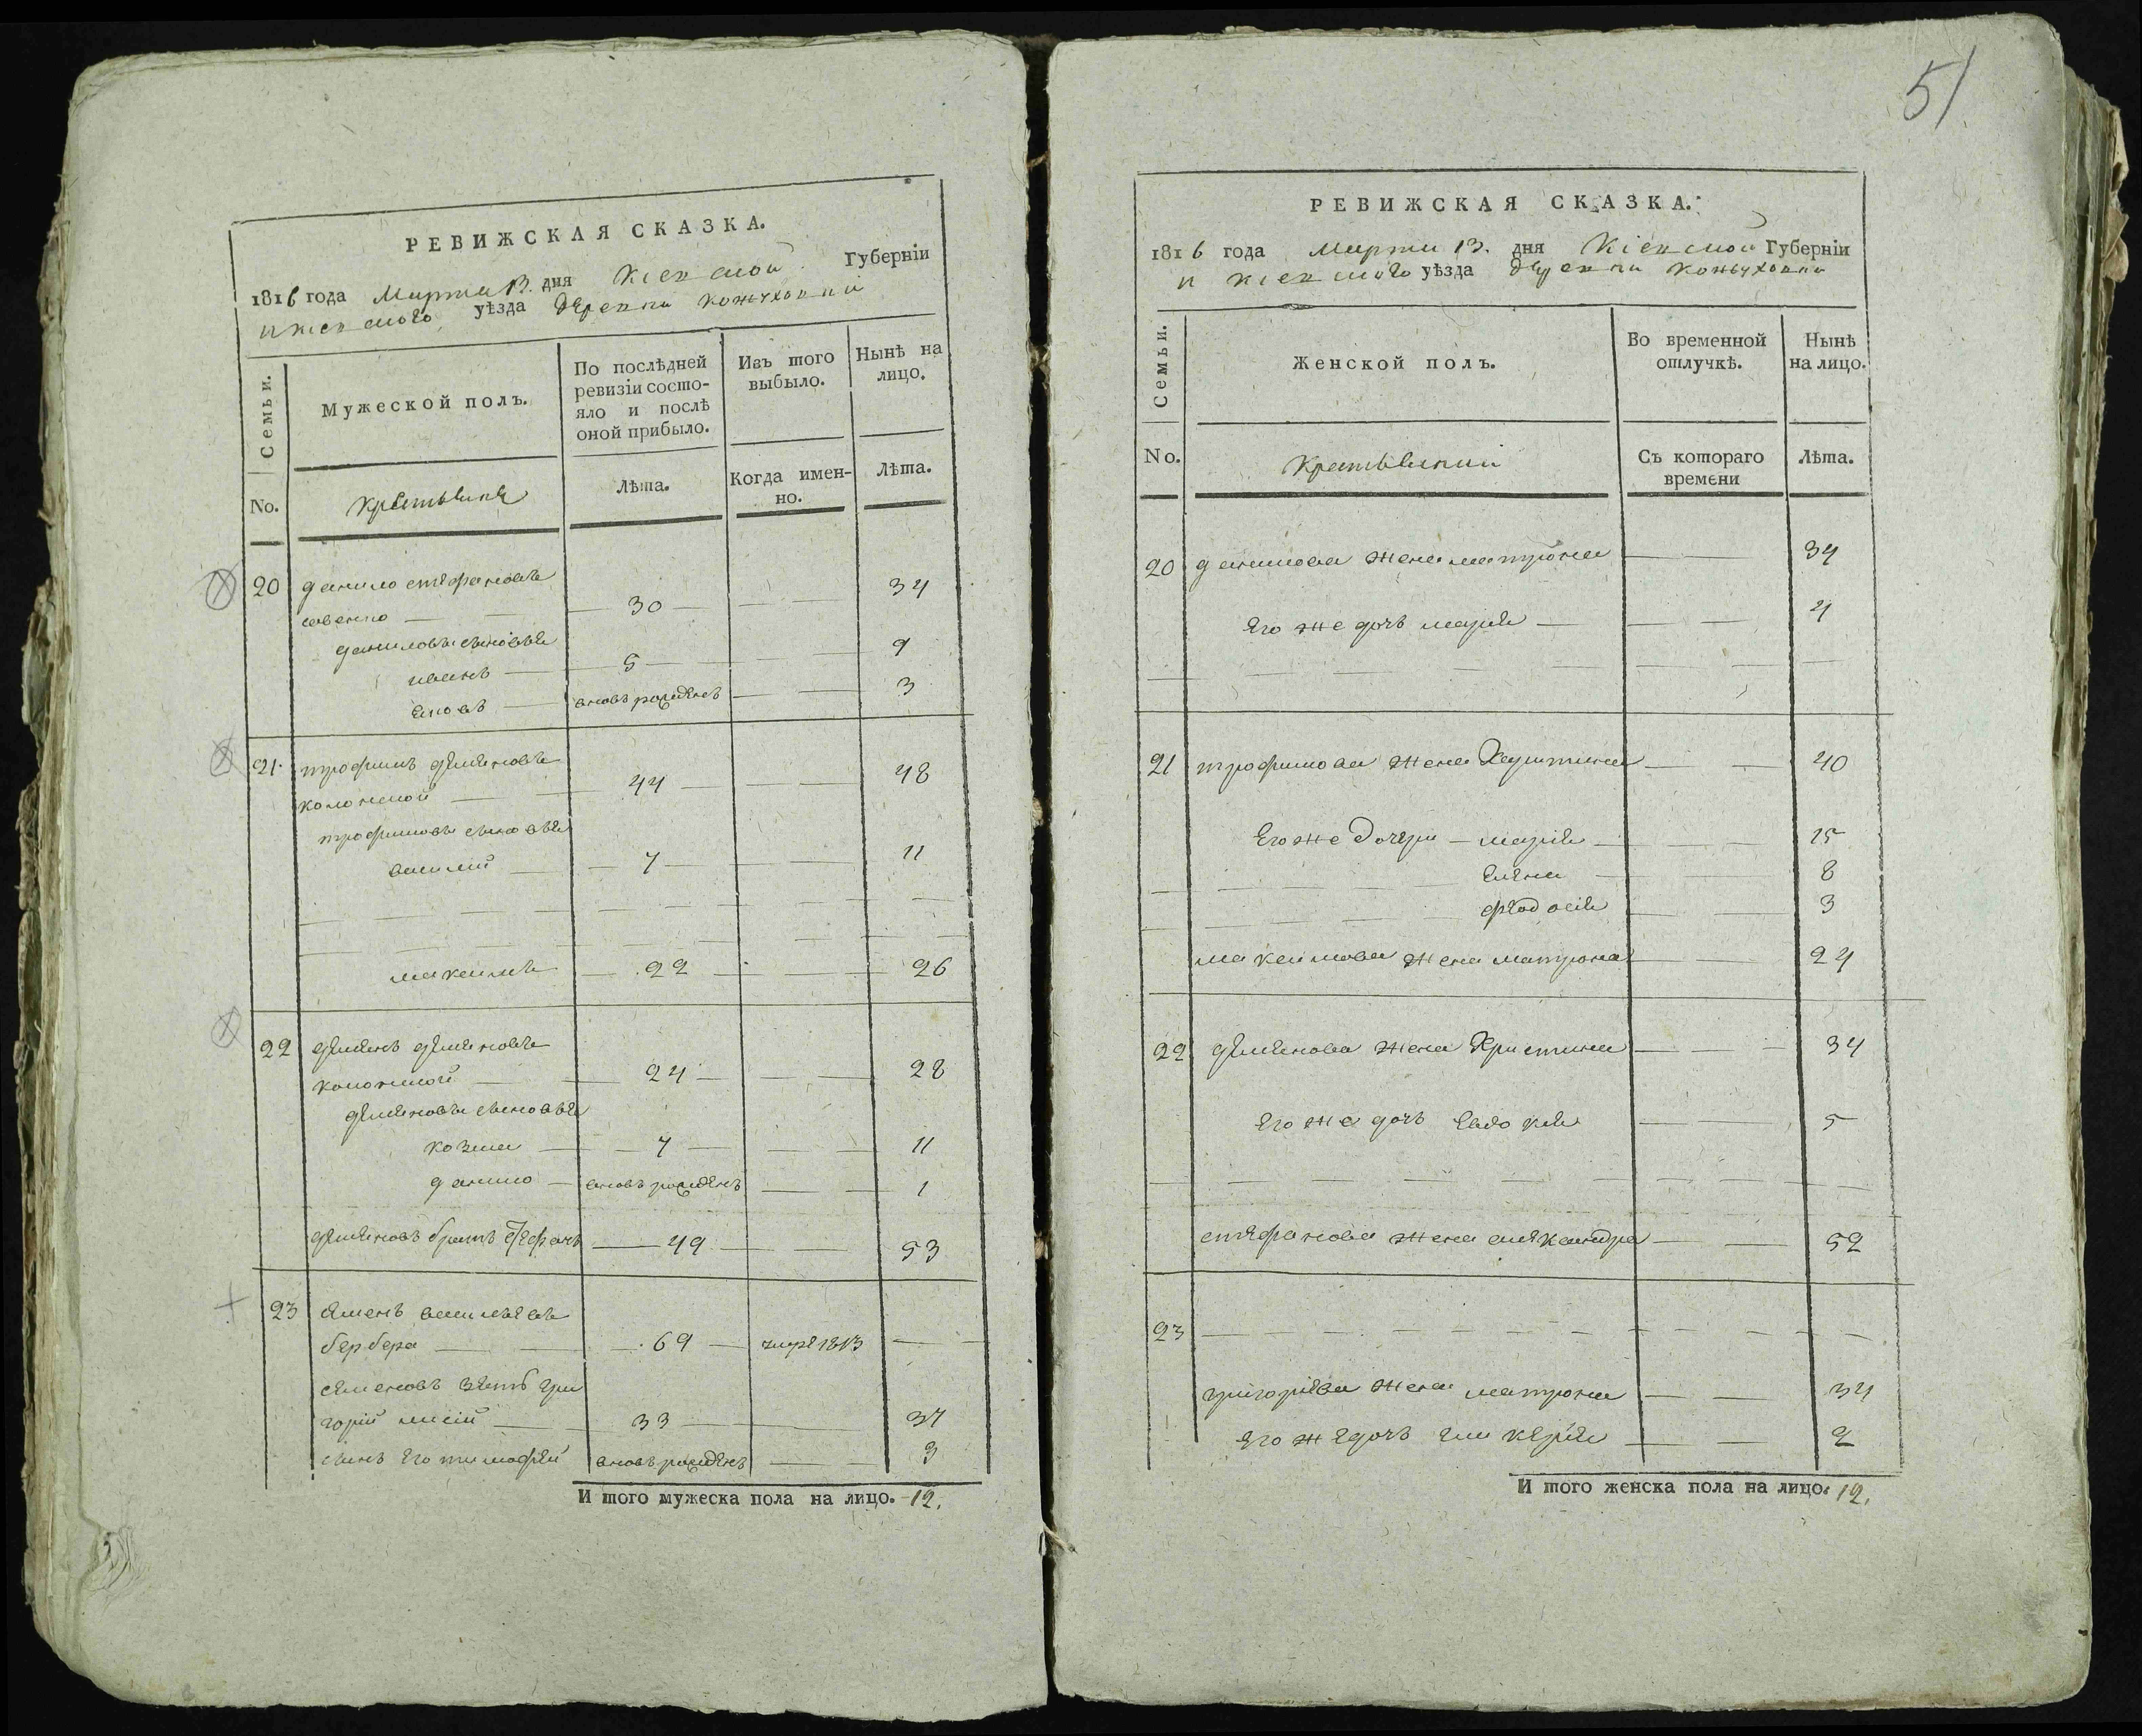 РЕВИЖСКАЯ СКАЗКА.
1816 года Марта 13. дня Кіевской Губерніи
и кіевского уѣзда деревни кожуховки
Семьи.
Мужеской полъ.
По послѣдней ревизіи состояло и послѣ оной прибыло.
Изъ того выбыло.
Нынѣ на лицо.
No.
крестьяне
Лѣта.
Когда именно.
Лѣта.
20 данило стефановъ
— 30 — — — 34
даниловы сыновья
иванъ — 5 — — 9
яковъ — вновь рожденъ — — 3
21. трофимъ демяновъ
коломной — 44 — — — 48
трофимовы сыновья
василий — 7 — — — 11
максимъ — 22 — — 26
22 демянъ демяновъ
коломной — 24 — — — 28
демяновы сыновья
козма — 7 — — — 11
данило — вновь рожденъ — — 1
демяновъ братъ стефанъ — 49 — — 53
23 семенъ васильевъ
бербера — 69 — умре 1813 — —
семеновъ зять гри
горій лисій — 33 — — 37
сынъ его тимофей вновь рожденъ — — 3
И того мужеска пола на лицо. 12.
51
РЕВИЖСКАЯ СКАЗКА.
1816 года Марта 13. дня Кіевской Губерніи
и кіевского уѣзда деревни кожуховки
Семьи.
Женской полъ.
Во временной отлучкѣ.
Нынѣ на лицо.
No.
крестьянки
Съ котораго времени
Лѣта.
20 данилова жена матрона — — 34
его же дочь марія — — — 4
21 трофимова жена — — 40
его же дочери — марія — — — 15
елена — — 8
феодосія — — 3
максимова жена матрона — — 24
22 демянова жена Христина — — — 34
его же дочь евдокія — — 5
стефанова жена александра — — 52
23 — — — — — —
григоріева жена матрона — — 34
его же дочь гликерія — — 2
И того женска пола на лицо. 12.